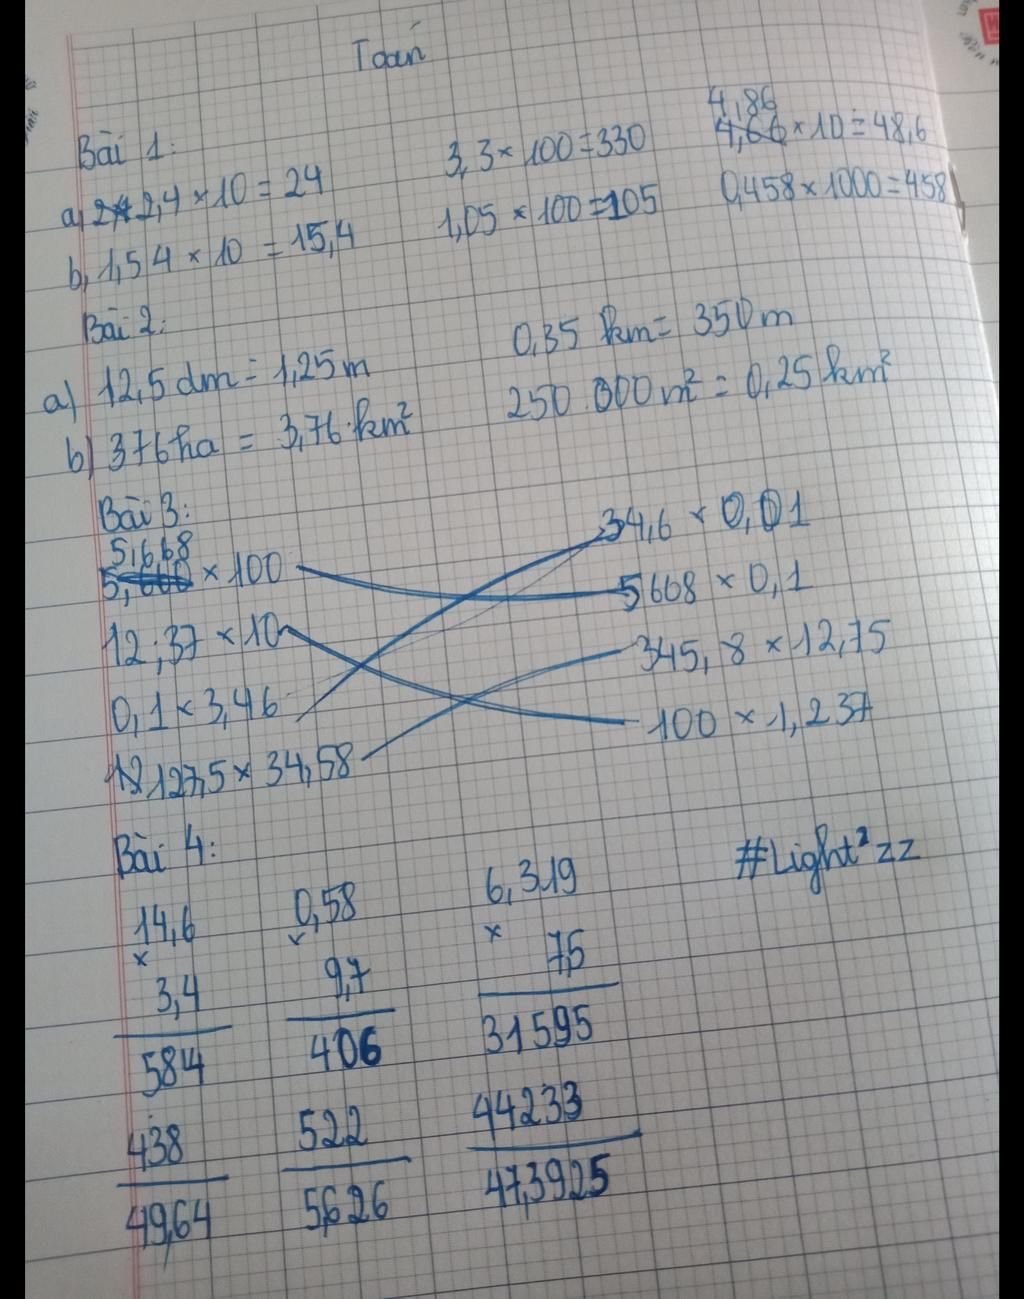 Toán
Bài 1:
a, 2,4 × 10 = 24 3,3 × 100 = 330 4,86 × 10 = 48,6
b, 1,54 × 10 = 15,4 1,05 × 100 = 105 0,458 × 1000 = 458
Bài 2:
a) 12,5 dm = 1,25 m 0,35 km = 350 m
b) 376 ha = 3,76 km² 250 000 m² = 0,25 km²
Bài 3:
5,668 × 100 34,6 × 0,01
12,37 × 10 5668 × 0,1
0,1 × 3,46 345,8 × 12,75
127,5 × 34,58 100 × 1,237
Bài 4: #Light²zz
14,6 0,58 6,319
× × ×
3,4 9,7 7,5
584 406 31595
438 522 44233
49,64 5,626 47,3925